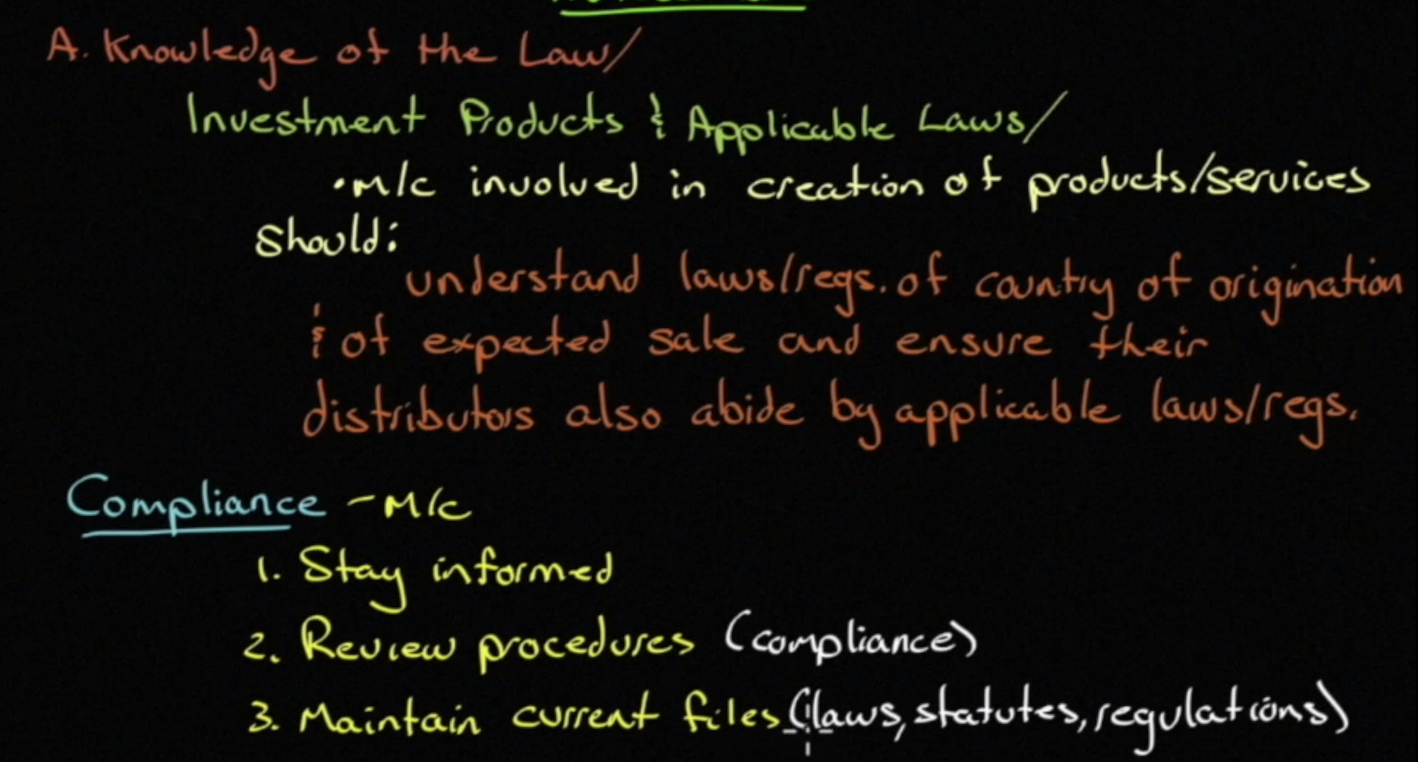 A. Knowledge of the Law/
Investment Products & Applicable Laws/
• M/c involved in creation of products/services
should:
understand laws/regs. of country of origination
& of expected sale and ensure their
distributors also abide by applicable laws/regs.
Compliance - M/c
1. Stay informed
2. Review procedures (compliance)
3. Maintain current files (laws, statutes, regulations)